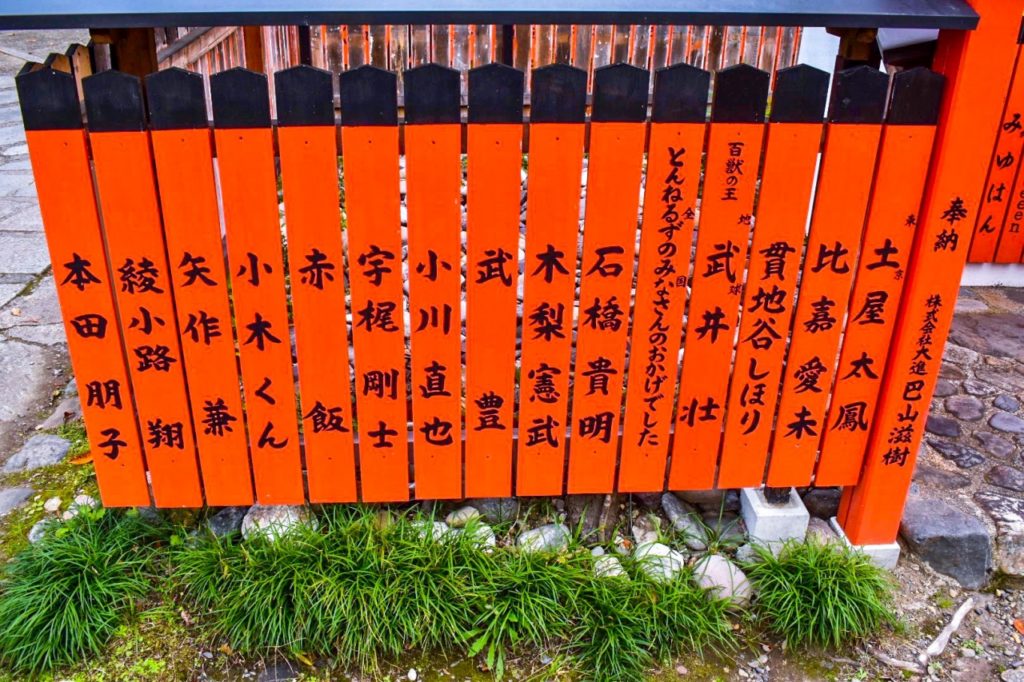 みゆはん
een
奉納 株式会社大進 巴山滋樹
東京
土屋太鳳
比嘉愛未
貫地谷しほり
百獣の王
地球
武井壮
全国
とんねるずのみなさんのおかげでした
石橋貴明
木梨憲武
武豊
小川直也
宇梶剛士
赤飯
小木くん
矢作兼
綾小路翔
本田朋子